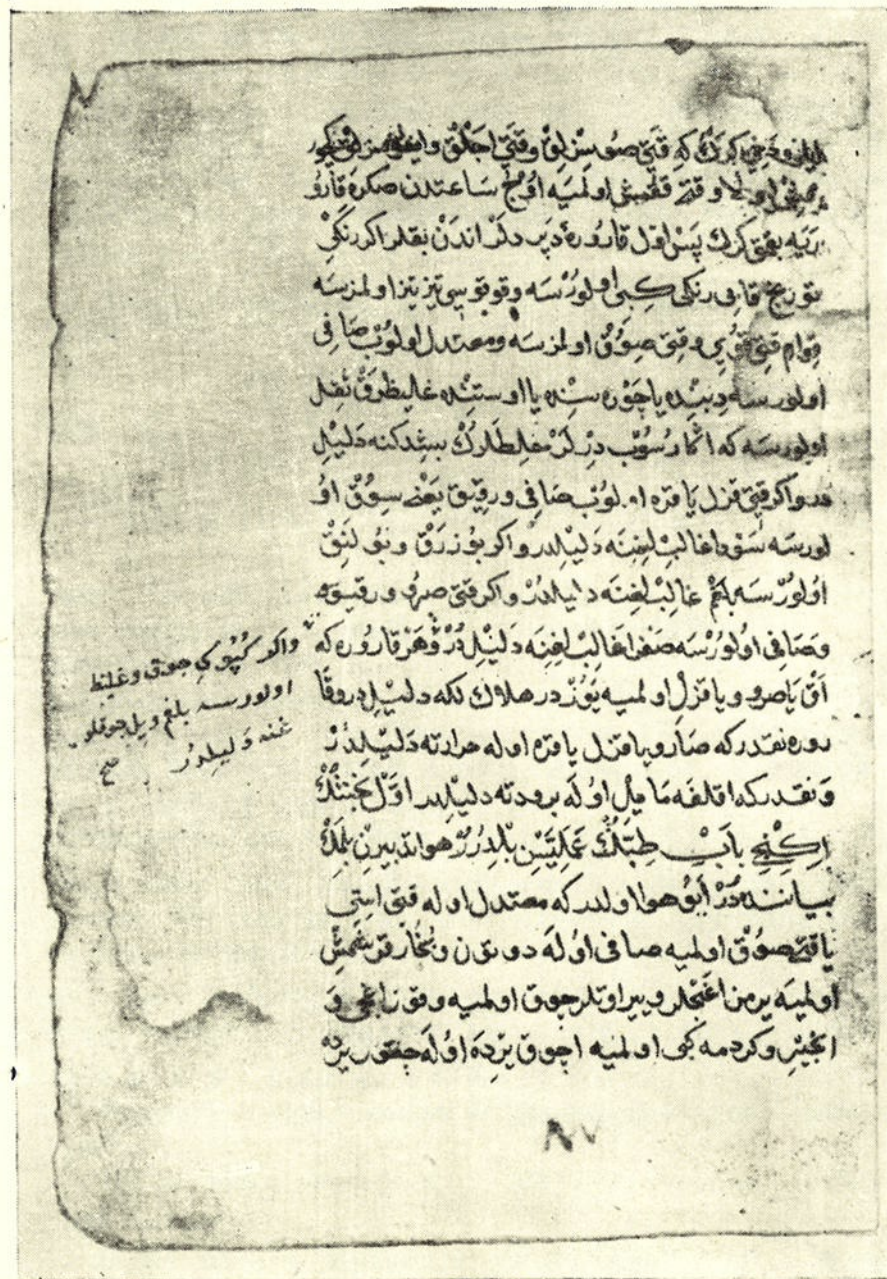 كرك كه قتى صوسزلق وقتى اجلق
اولا وقتى قلمش اولميه اوج ساعتدن صكره قارو
رَيَه بقمق كرك پس اول قاروره ديرلر اندن بقلر اكر رنكى
تورنج قابى رنكى كبى اولورسه وقوقوسى تيز تيز اولمزسه
قوام قتى قويى وقتى صوق اولمزسه ومعتدل اولوب صافى
اولورسه دبنده يا چوره سنده يا اوستنده غليظرق ثفل
اولورسه كه اكا رسوب درلر خلطلرك بشدكنه دليل
در واكر قتى قزل يا قره اولوب صافى ورقيق يعنى سيوق او
لورسه سودا غالبلغنه دليلدر واكر بوزرق وبولنق
اولورسه بلغم غالبلغنه دليلدر واكر قتى صرو ورقيق
وصافى اولورسه صفرا غالبلغنه دليلدر وهر قاروره كه
اق يا صرو ويا قزل اولميه يوزدر هلاكلكه دليلدر وقا
روره نقدركه صارو يا قزل يا قره اوله حرارته دليلدر
ونقدركه اقلغه مايل اوله برودته دليلدر اول بخشنك
اكنجى باب طبك عمليتن بلدرر هوا تدبيرن بلمك
بياننده در ايو هوا اولدركه معتدل اوله قتى استى
يا قتى صوق اولميه صافى اوله دوتون وبخار قرشمش
اولميه يرمز اغجلر ويير اوتلر چوق اولميه وقوز اغجى و
انجير وكردمه كبى اولميه اچوق يرده اوله چقور يرده
واكر كپوكى چوق وغليظ
اولورسه بلغم ويل چوقلو
غنه دليلدر صح
٨٧